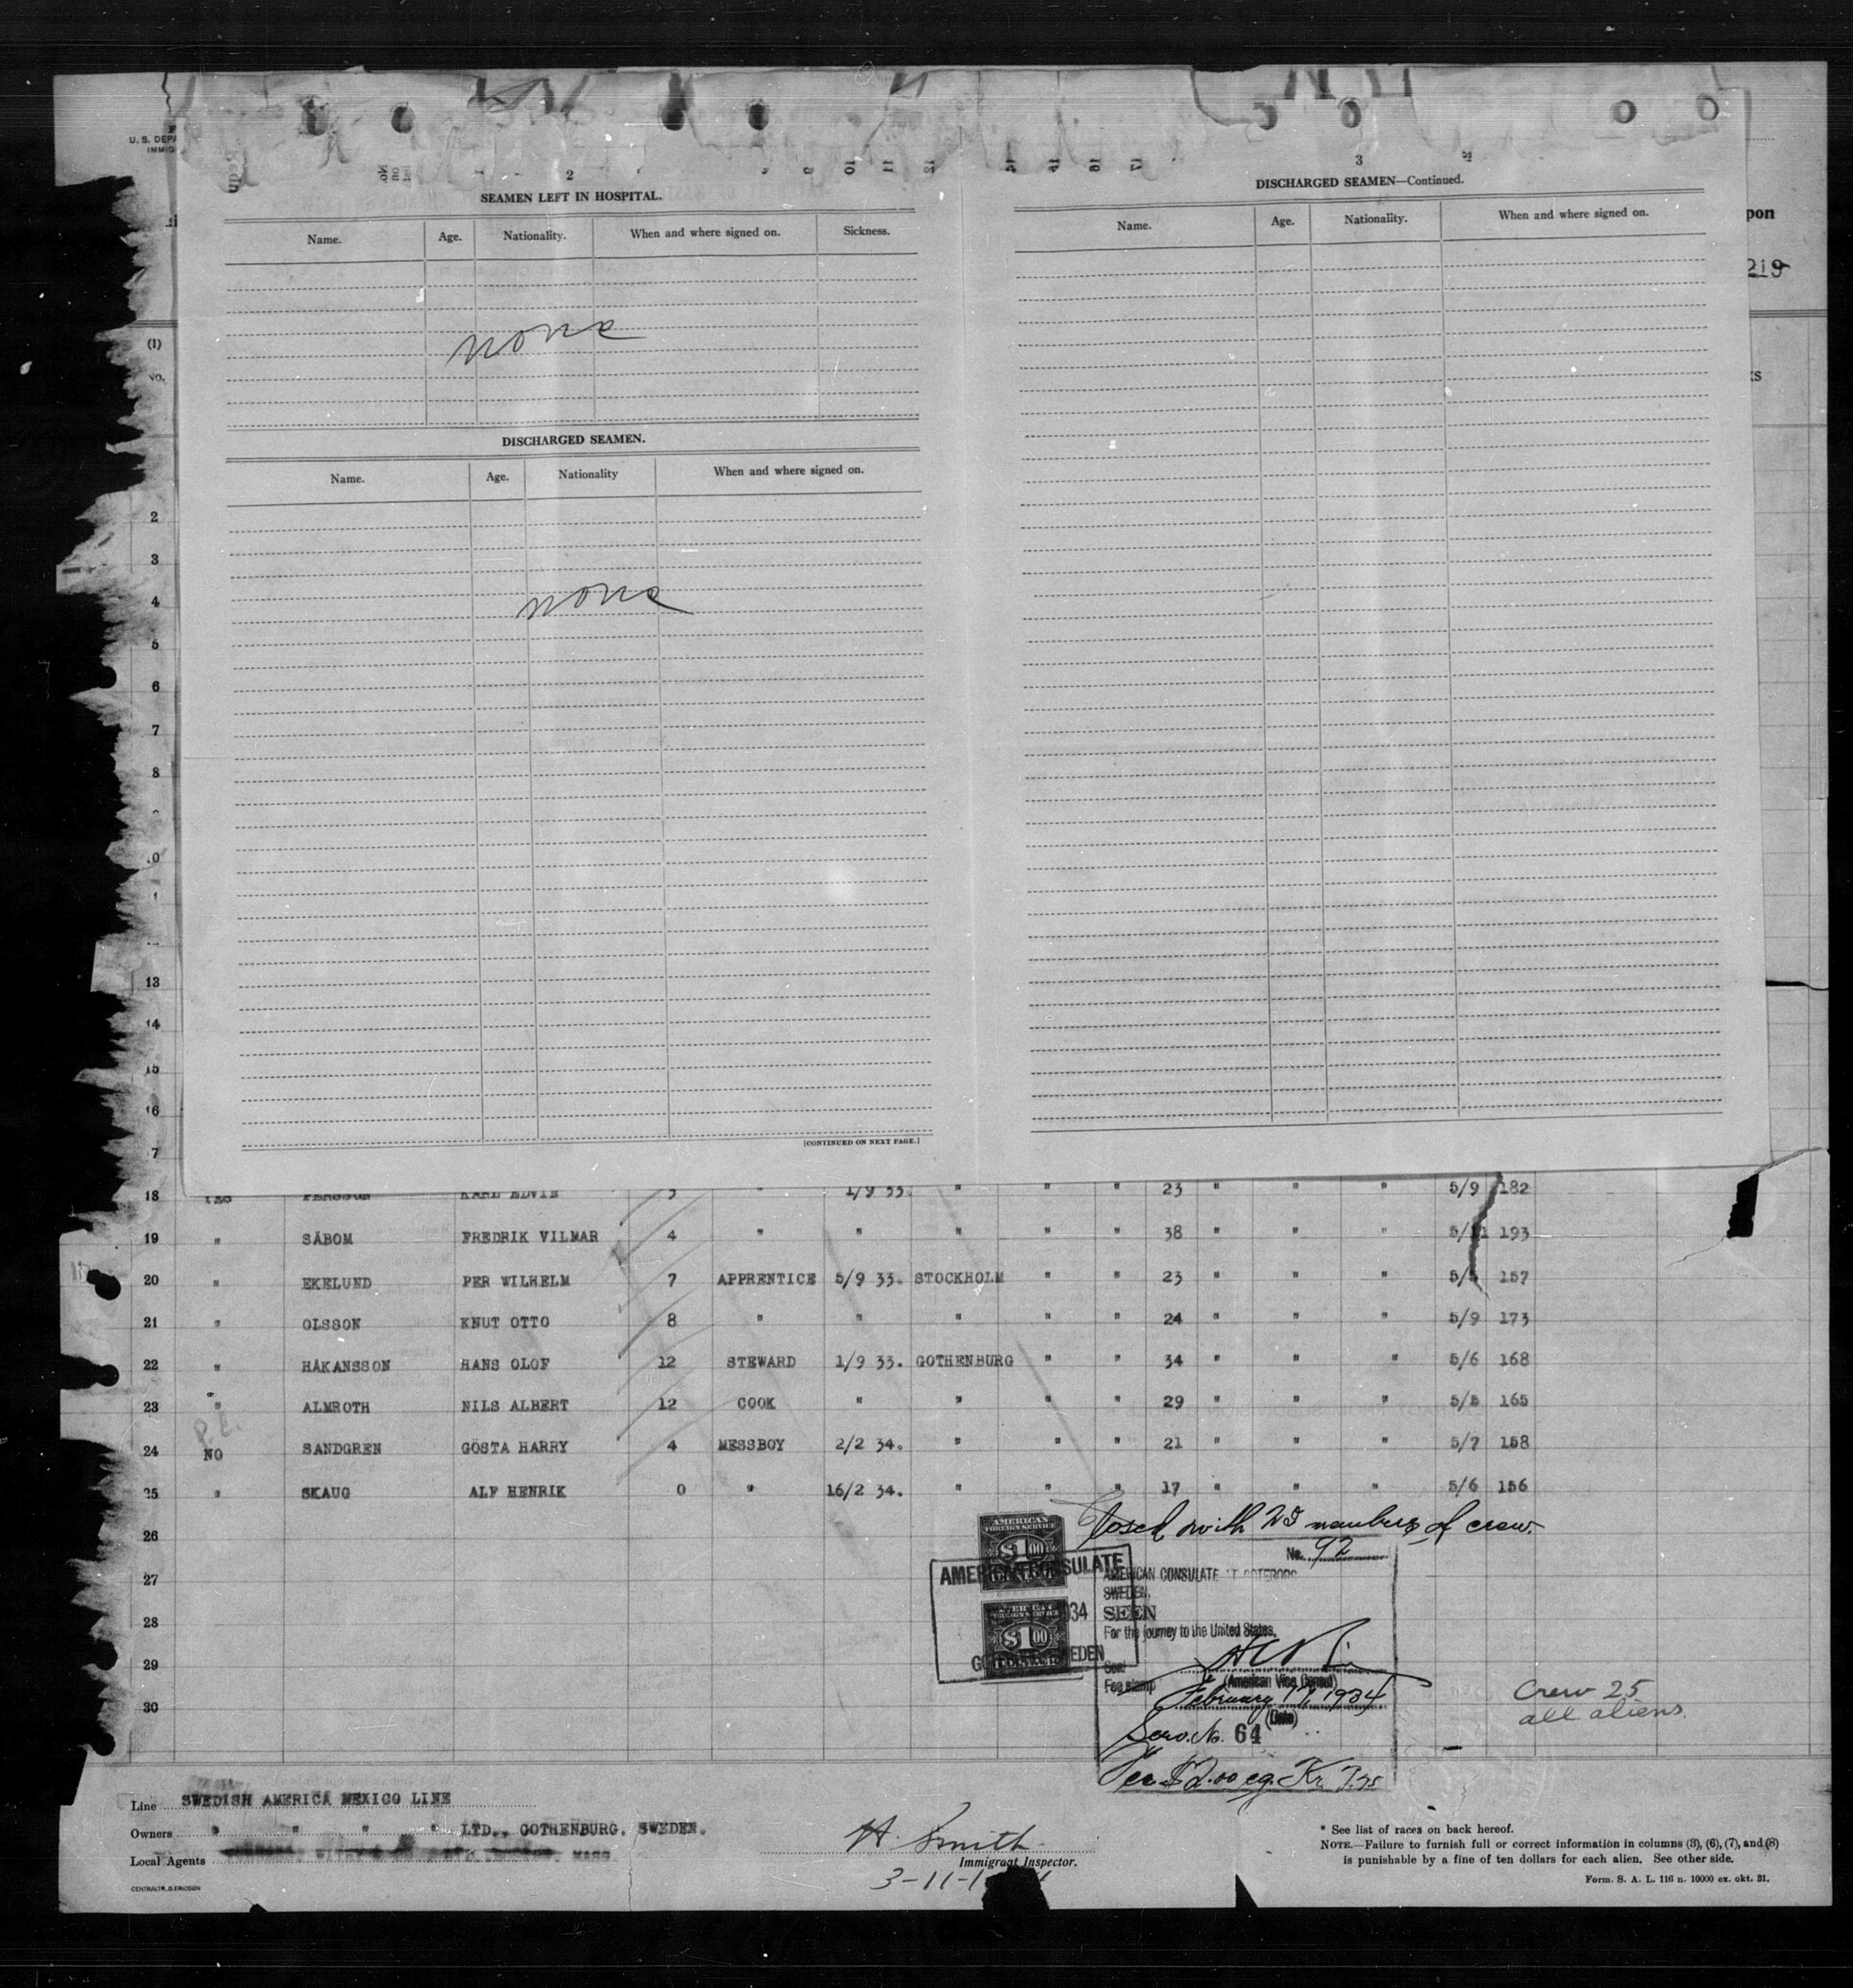 U. S. DEPA
IMMIG
2
SEAMEN LEFT IN HOSPITAL.
Name. Age. Nationality. When and where signed on. Sickness.
none
DISCHARGED SEAMEN.
Name. Age. Nationality When and where signed on.
none
[CONTINUED ON NEXT PAGE.]
3
DISCHARGED SEAMEN—Continued.
Name. Age. Nationality. When and where signed on.
pon
219
ks
(1)
No.
2
3
4
5
6
7
8
10
1
13
14
15
16
7
18 YES PERSSON KARL EDVIN 3 " 1/9 33. " " " 23 " " " 5/9 182
19 " SÄBOM FREDRIK VILMAR 4 " " " " " 38 " " " 5/11 193
20 " EKELUND PER WILHELM 7 APPRENTICE 5/9 33. STOCKHOLM " " 23 " " " 5/5 157
21 " OLSSON KNUT OTTO 8 " " " " " 24 " " " 5/9 173
22 " HÅKANSSON HANS OLOF 12 STEWARD 1/9 33. GOTHENBURG " " 34 " " " 5/6 168
23 " ALMROTH NILS ALBERT 12 COOK " " " " 29 " " " 5/5 165
P.L.
24 NO SANDGREN GÖSTA HARRY 4 MESSBOY 2/2 34. " " " 21 " " " 5/7 158
25 " SKAUG ALF HENRIK 0 " 16/2 34. " " " 17 " " " 5/6 156
26
27
28
29
30
Closed with 25 members of crew.
No. 92
AMERICAN FOREIGN SERVICE
$1.00
AMERICAN CONSULATE
AMERICAN FOREIGN SERVICE
$1.00
1934
SWEDEN
AMERICAN CONSULATE AT GOTEBORG
SWEDEN.
SEEN
For the journey to the United States.
Seal
(American Vice Consul)
Fee stamp
February 17, 1934
(Date)
Serv. No. 64
Fee $2.00 eq. Kr. 7.75
Crew 25
all aliens.
Line SWEDISH AMERICA MEXICO LINE
Owners " " " " LTD., GOTHENBURG, SWEDEN.
Local Agents MASS
CENTRALTR. G. ERICSON
H. Smith
Immigrant Inspector.
3-11-1
* See list of races on back hereof.
NOTE.—Failure to furnish full or correct information in columns (3), (6), (7), and (8)
is punishable by a fine of ten dollars for each alien. See other side.
Form. S. A. L. 116 n. 10000 ex. okt. 31.